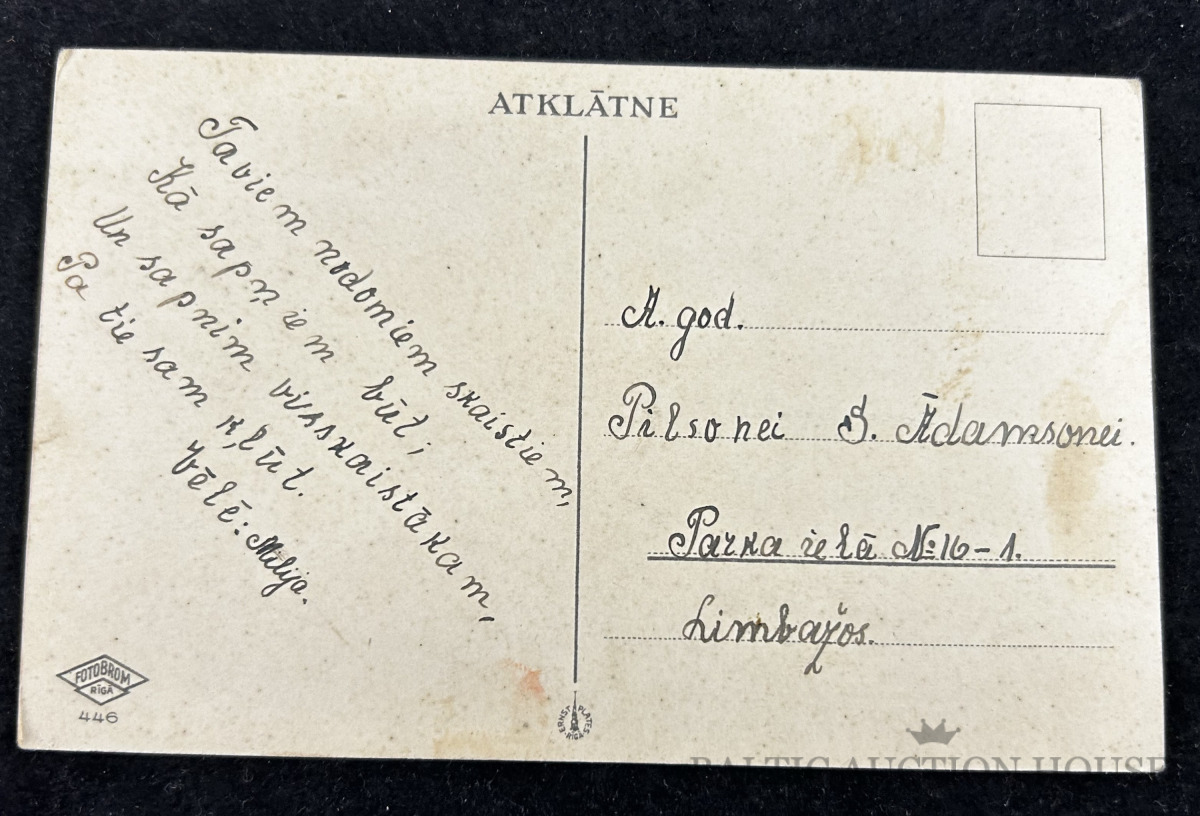 ATKLĀTNE
Taviem nodomiem skaistiem,
Kā sapņiem būt,
Un sapnim visskaistākam,
Pa tie sam kļūt.
Vēlē: Milija.
A. god.
Pilsonei Ādamsonei.
Parka ielā № 16-1.
Limbažos.
FOTOBROM
RĪGĀ
446
ERNST PLATES RĪGĀ
BALTIC AUCTION HOUSE